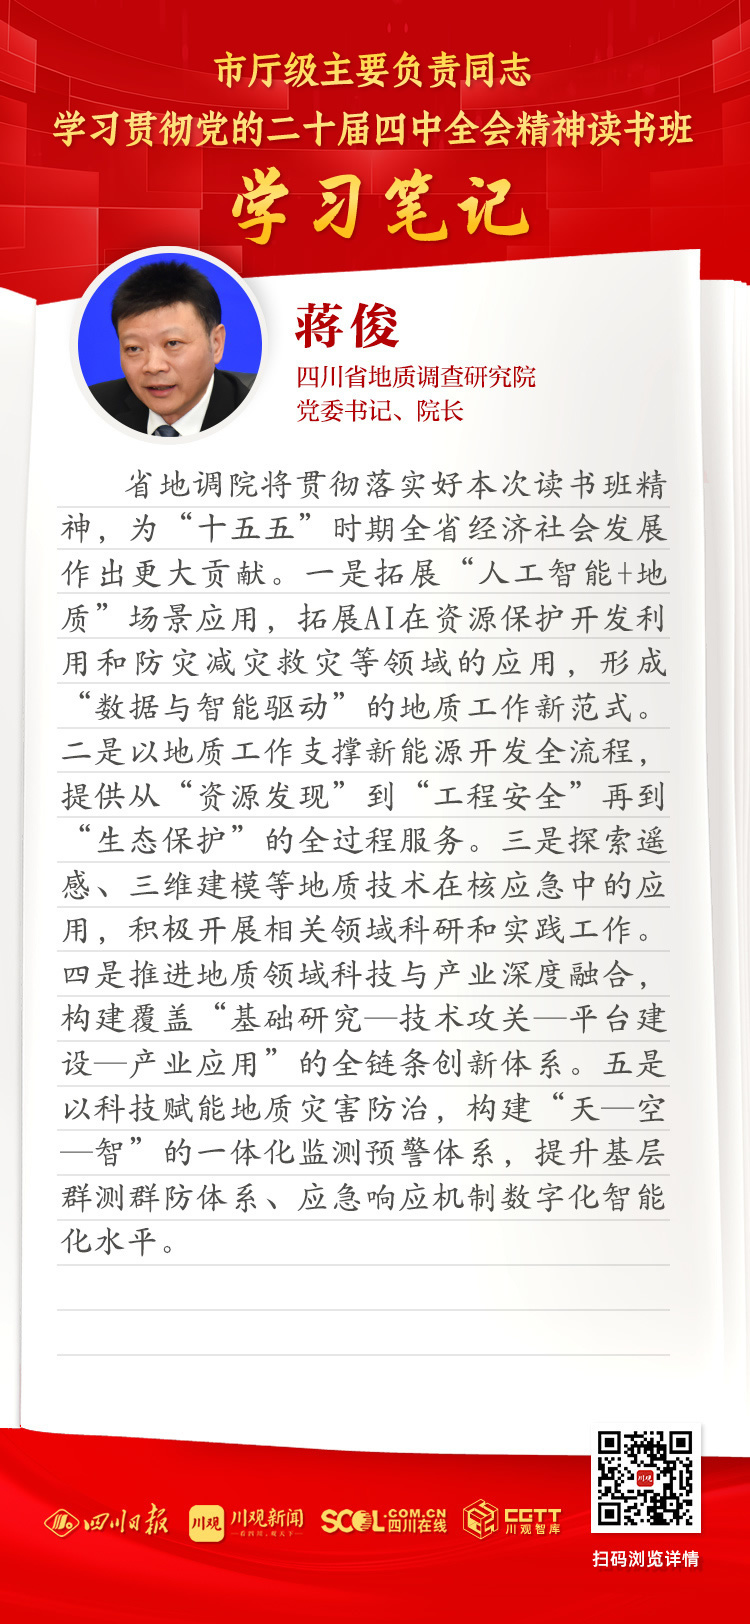 市厅级主要负责同志
学习贯彻党的二十届四中全会精神读书班
学习笔记
蒋俊
四川省地质调查研究院
党委书记、院长
省地调院将贯彻落实好本次读书班精
神，为“十五五”时期全省经济社会发展
作出更大贡献。一是拓展“人工智能+地
质”场景应用，拓展AI在资源保护开发利
用和防灾减灾救灾等领域的应用，形成
“数据与智能驱动”的地质工作新范式。
二是以地质工作支撑新能源开发全流程，
提供从“资源发现”到“工程安全”再到
“生态保护”的全过程服务。三是探索遥
感、三维建模等地质技术在核应急中的应
用，积极开展相关领域科研和实践工作。
四是推进地质领域科技与产业深度融合，
构建覆盖“基础研究—技术攻关—平台建
设—产业应用”的全链条创新体系。五是
以科技赋能地质灾害防治，构建“天—空
—智”的一体化监测预警体系，提升基层
群测群防体系、应急响应机制数字化智能
化水平。
四川日报
川观
川观新闻
—看四川，观天下—
SCOL.COM.CN
四川在线
CGTT
川观智库
川观
扫码浏览详情